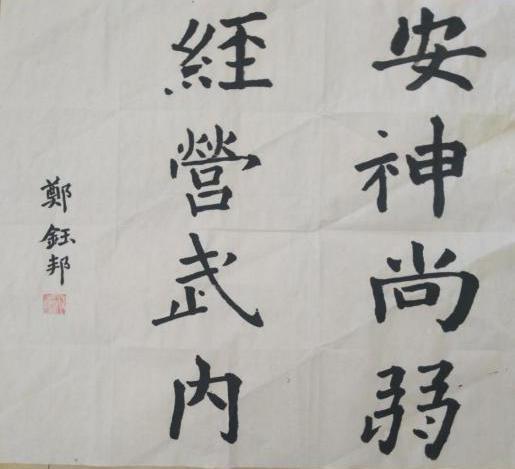 安神尚弱
經營武內
鄭鈺邦